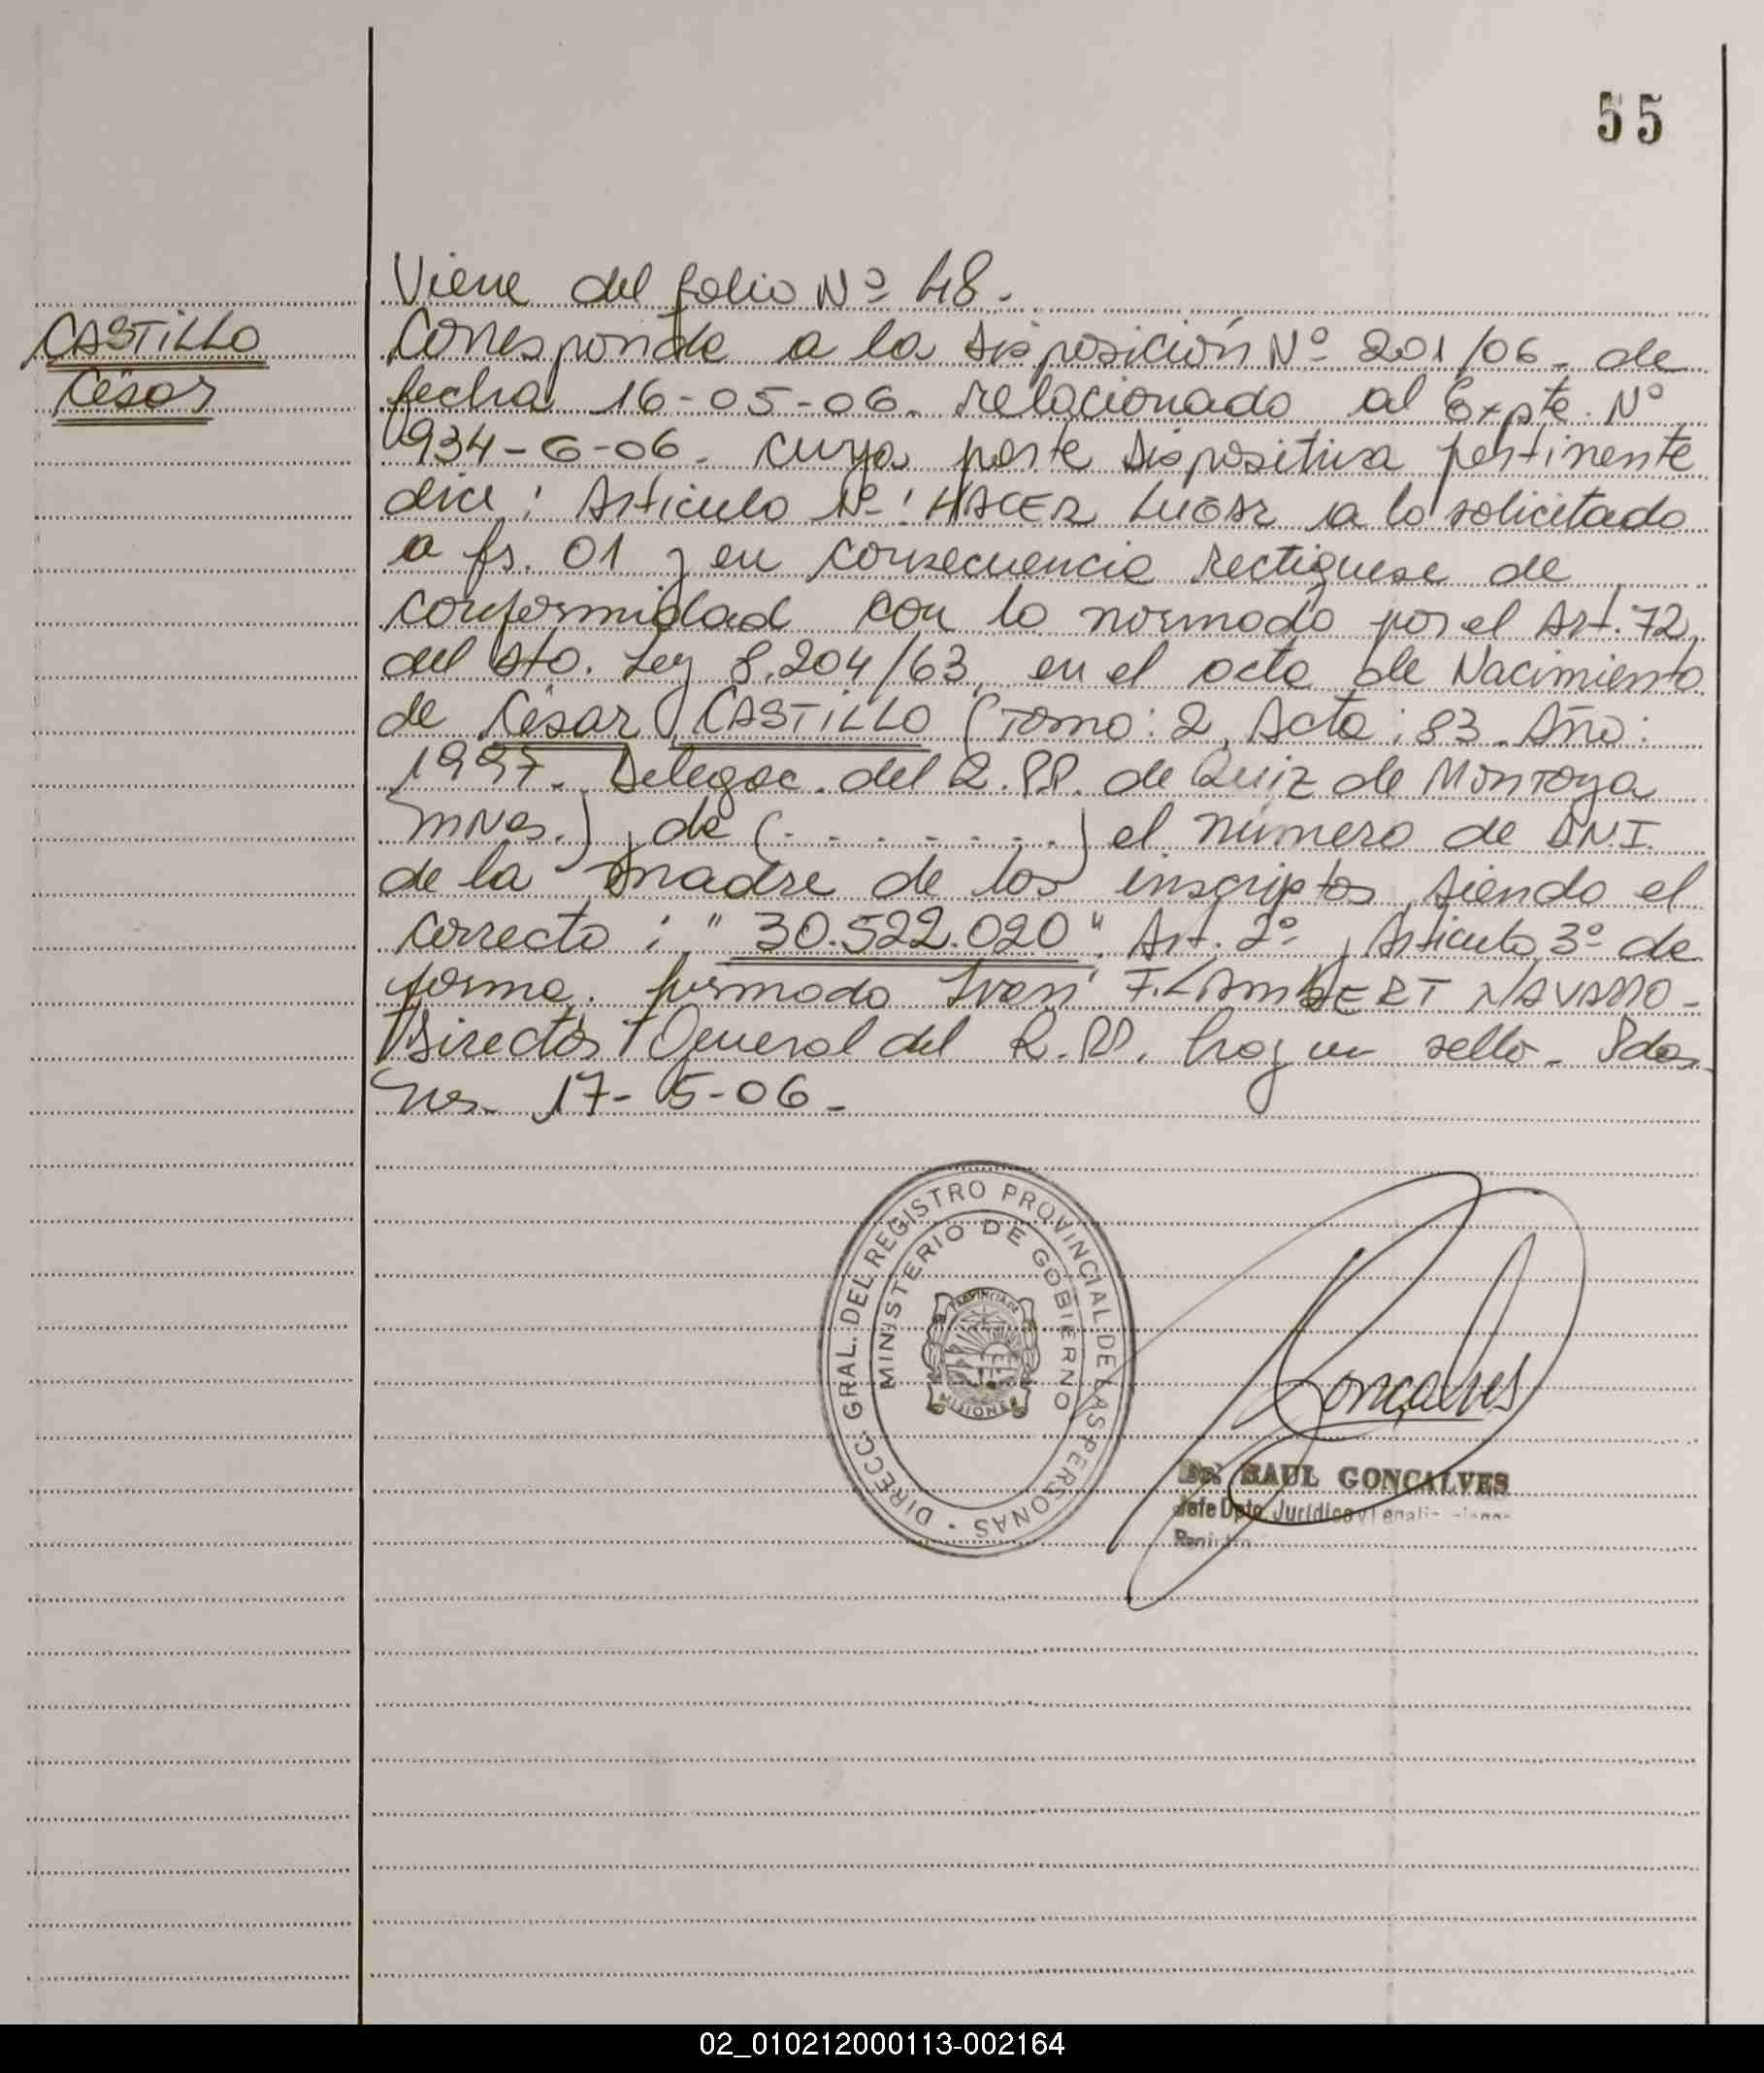 55
Viene del folio Nº 48.
CASTILLO
César
Corresponde a la Disposición Nº 201/06 - de
fecha 16-05-06. relacionado al Expte. Nº
934-G-06 - cuya parte Dispositiva pertinente
dice: Articulo Nº: HACER LUGAR a lo solicitado
a fs. 01 y en consecuencia rectiquese de
conformidad con lo normado por el Art. 72,
del Dto. Ley 8.204/63, en el acta de Nacimiento
de César CASTILLO (Tomo: 2, Acta: 83 - Año:
1997 - Delegac. del R.PP. de Ruiz de Montoya
Mnes.), de (. . . . . . . .) el número de D.N.I.
de la madre de los inscriptos, siendo el
correcto: "30.522.020". Art. 2º, Articulo 3º de
forma. firmado Ivan F. LAMBERT NAVARRO -
Director General del R.PP. hay un sello - Pdas.
Mes. 17-5-06 -
DIRECC. GRAL. DEL REGISTRO PROVINCIAL DE LAS PERSONAS
MINISTERIO DE GOBIERNO
PROVINCIA DE
MISIONES
Goncalves
Dr. RAUL GONCALVES
Jefe Dpto. Jurídico y
02_010212000113-002164